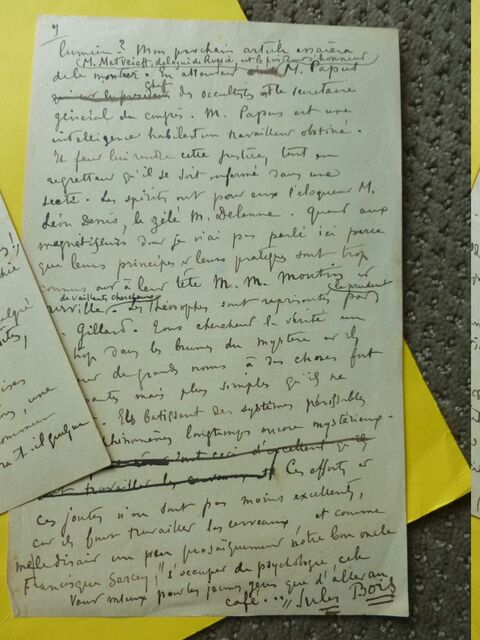 9
lumière? Mon prochain article essaiera
(M. Matveieff, délégué de Russie, est le président d'honneur)
de le montrer. En attendant M. Papus
chef
des occultistes est le secrétaire
général du congrès. M. Papus est une
intelligence habile et un travailleur obstiné.
Il faut lui rendre cette justice, tout en
regrettant qu'il se soit enfermé dans une
secte. Les spirits ont pour eux l'éloquent M.
Léon Denis, le zélé M. Delanne. Quant aux
magnétiseurs dont je n'ai pas parlé ici parce
que leurs principes et leurs pratiques sont trop
connus ont à leur tête M. M. et
de vaillants chercheurs
le prudent
Les Théosophes sont représentés par
Gillard. Tous cherchent la vérité un
trop dans les brumes du mystère et ils
de grands noms à des choses fort
mais plus simples qu'ils ne
. Ils bâtissent des systèmes périssables
phénomènes longtemps encore mystérieux.
Ces efforts et
ces joutes n'en sont pas moins excellents,
car ils font travailler les cerveaux, et comme
me le disait un peu prosaïquement notre bon oncle
Francisque Sarcey, "s'occuper de psychologie, cela
vaut mieux pour les jeunes gens que d'aller au
café..." Jules Bois
une
il quelque